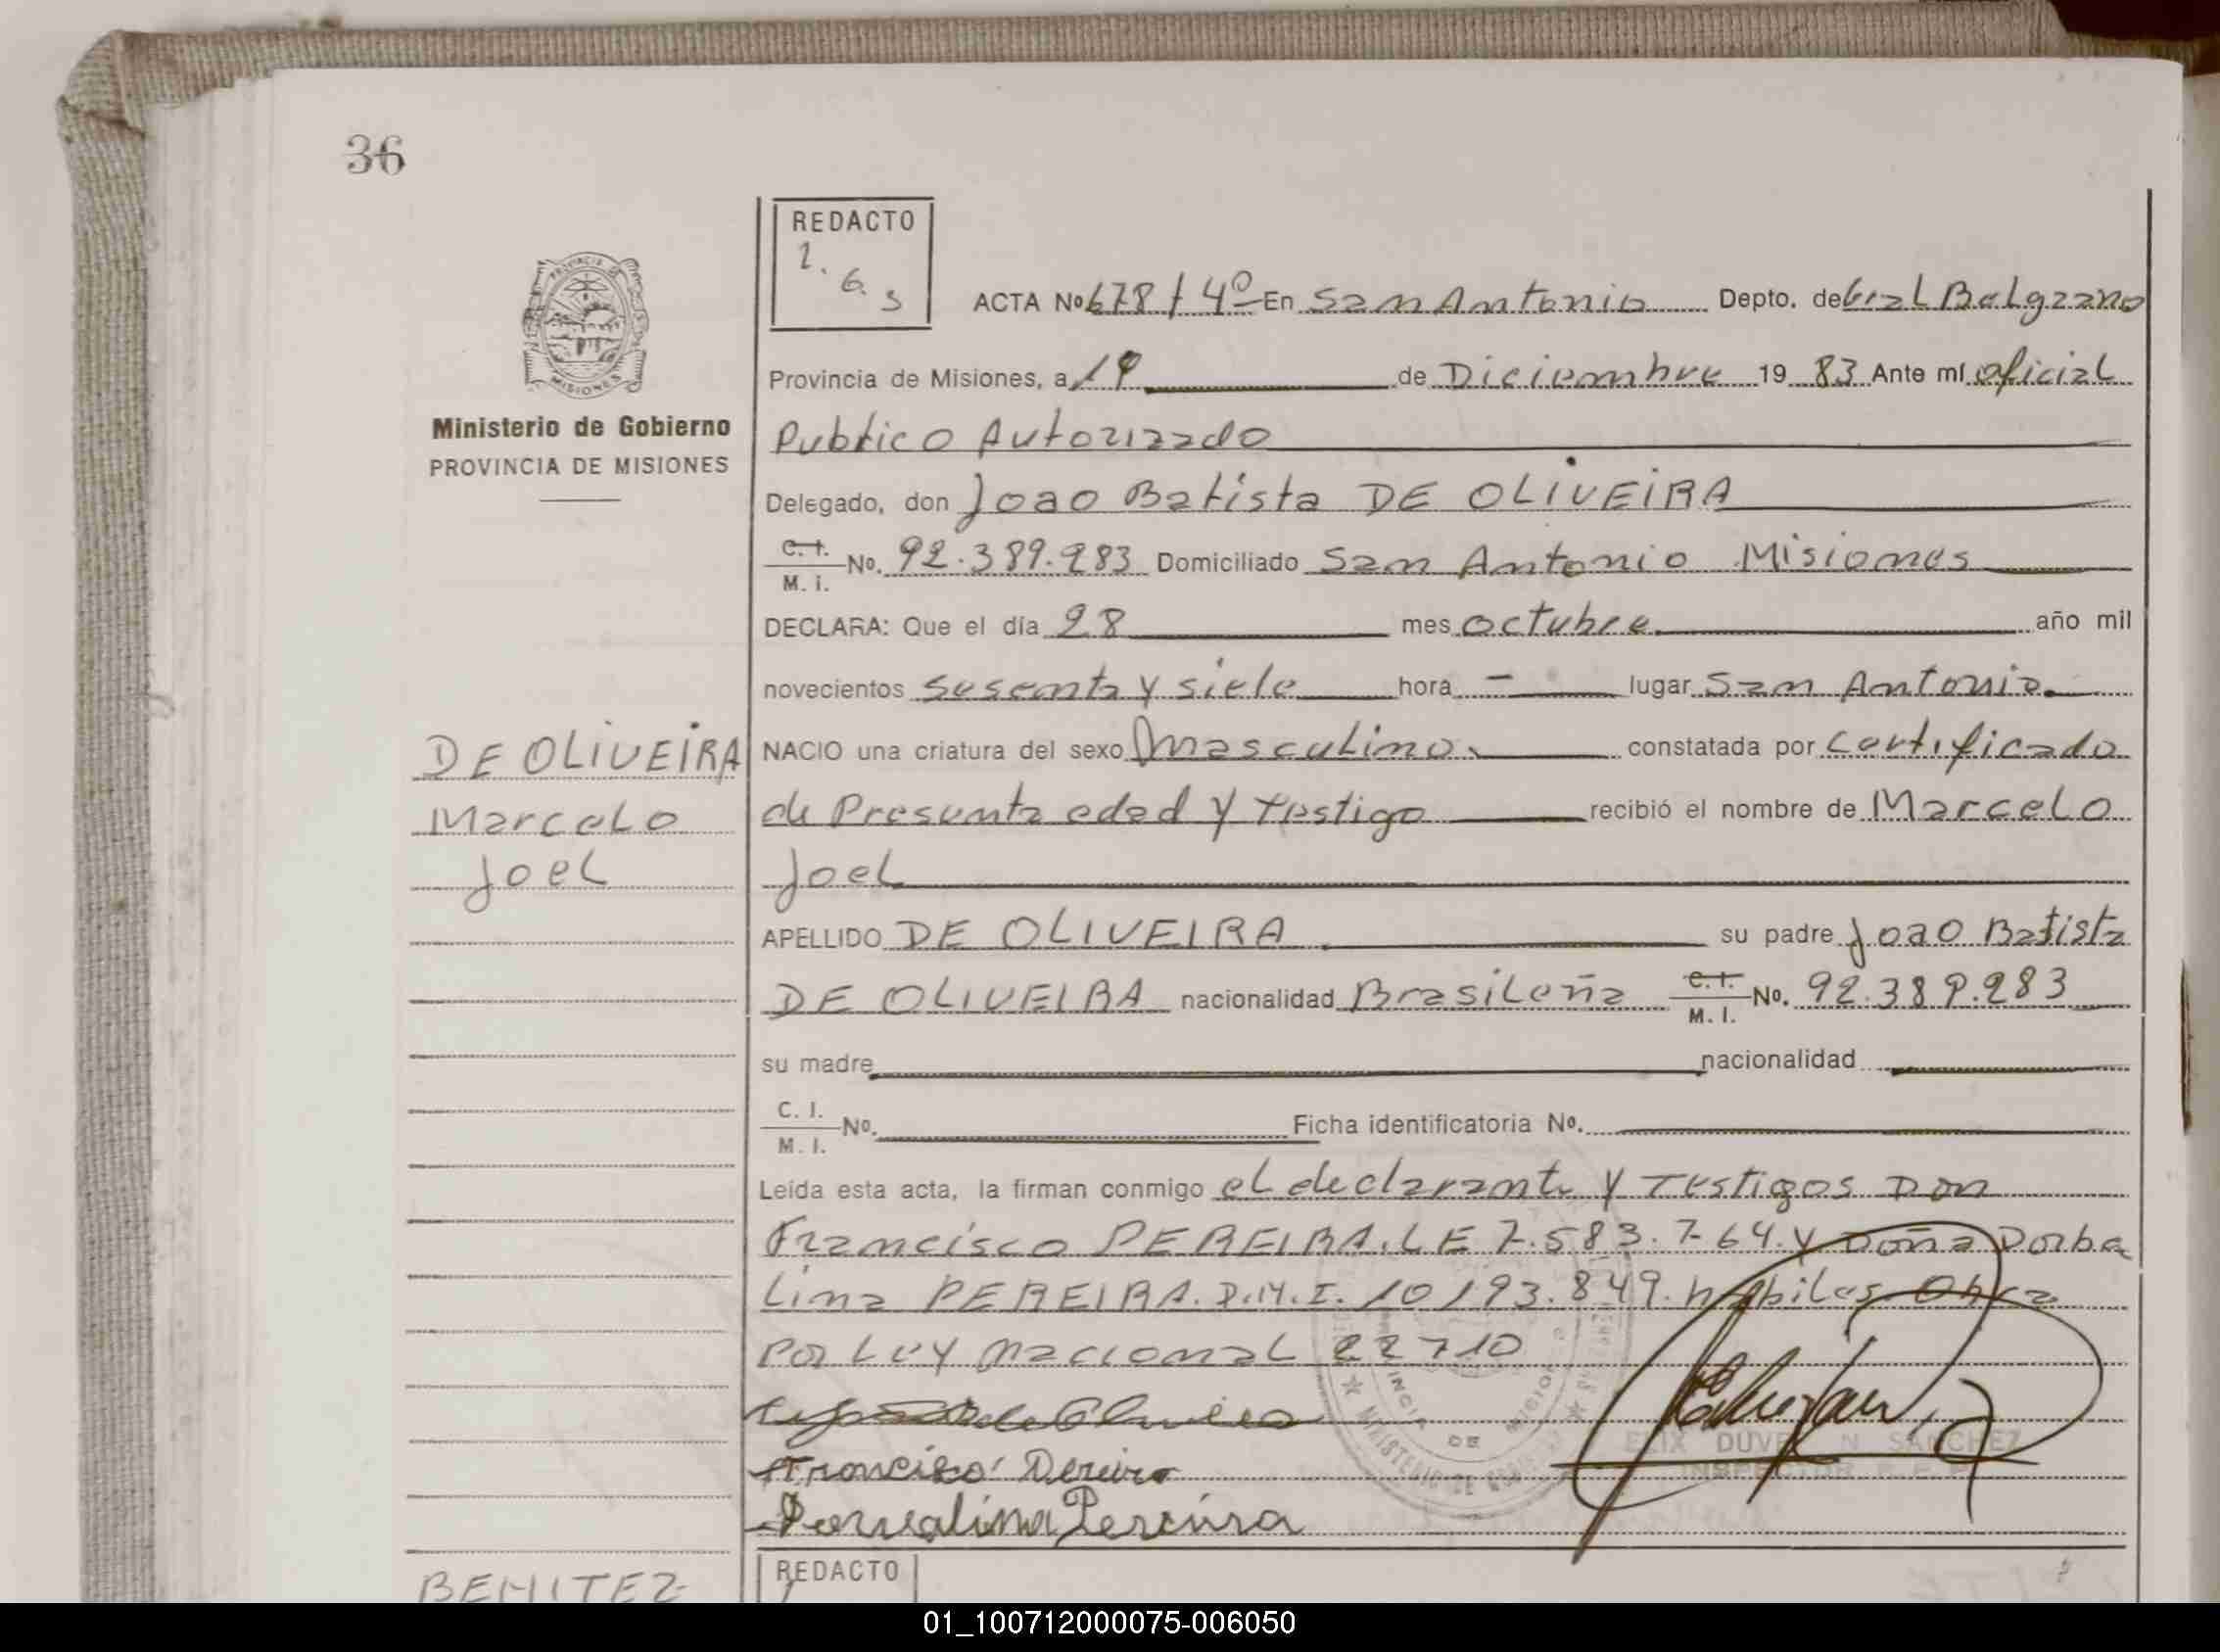 36
REDACTO
1. 6. 3
ACTA Nº 678 / 4º En San Antonio Depto. de Gral Belgrano
Provincia de Misiones, a 19 de Diciembre 19 83 Ante mí oficial
Ministerio de Gobierno
PROVINCIA DE MISIONES
Publico Autorizado
Delegado, don Joao Batista DE OLIVEIRA
C. I. M. I. No. 92.389.283 Domiciliado San Antonio Misiones
DECLARA: Que el día 28 mes octubre año mil
novecientos sesenta y siete hora - lugar San Antonio
DE OLIVEIRA
Marcelo
Joel
NACIO una criatura del sexo Masculino constatada por certificado
de Presunta edad y testigo recibió el nombre de Marcelo
Joel
APELLIDO DE OLIVEIRA su padre Joao Batista
DE OLIVEIRA nacionalidad Brasileña C. I. M. I. No. 92.389.283
su madre nacionalidad
C. I. M. I. No. Ficha identificatoria No.
Leída esta acta, la firman conmigo el declarante y Testigos Don
Francisco PEREIRA. L E 7.583.764 y Doña Dorba
Lina PEREIRA. D.M.I. 10 193.849. habiles Obra
Por Ley Nacional 22710
Francisco Pereira
Dorvalina Pereira
DUVE N SANCHEZ
INSPECTOR
MINISTERIO DE
REDACTO
BENITEZ
01_100712000075-006050